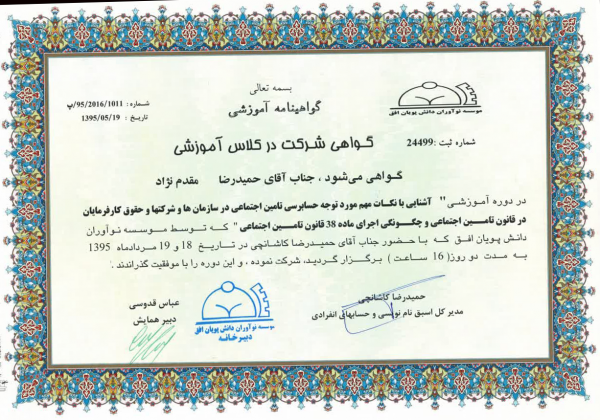 بسمه تعالی
گواهینامه آموزشی
شماره : 95/2016/1011/پ
تاریخ : 1395/05/19
موسسه نوآوران دانش پویان افق
شماره ثبت :24499
گواهی شرکت در کلاس آموزشی
گواهی می‌شود ، جناب آقای حمیدرضا مقدم نژاد
در دوره آموزشی " آشنایی با نکات مهم مورد توجه حسابرسی تامین اجتماعی در سازمان ها و شرکتها و حقوق کارفرمایان
در قانون تامـــین اجتماعی و چگــونگی اجرای ماده 38 قانون تامـــین اجتماعی " کـه توسـط موسسـه نوآوران
دانش پویـان افـق کـه بـا حضـور جناب آقای حمیـدرضا کاشانچی در تاریـخ 18 و 19 مردادماه 1395
به مدت دو روز( 16 ساعت ) برگـزار گردیـد، شرکت نموده ، و این دوره را با موفقیت گذراندند .
عباس قدوسی
دبیر همایش
موسسه نوآوران دانش پویان افق
دبیرخانه
حمیدرضا کاشانچی
مدیر کل اسبق نام نویسی و حسابهای انفرادی